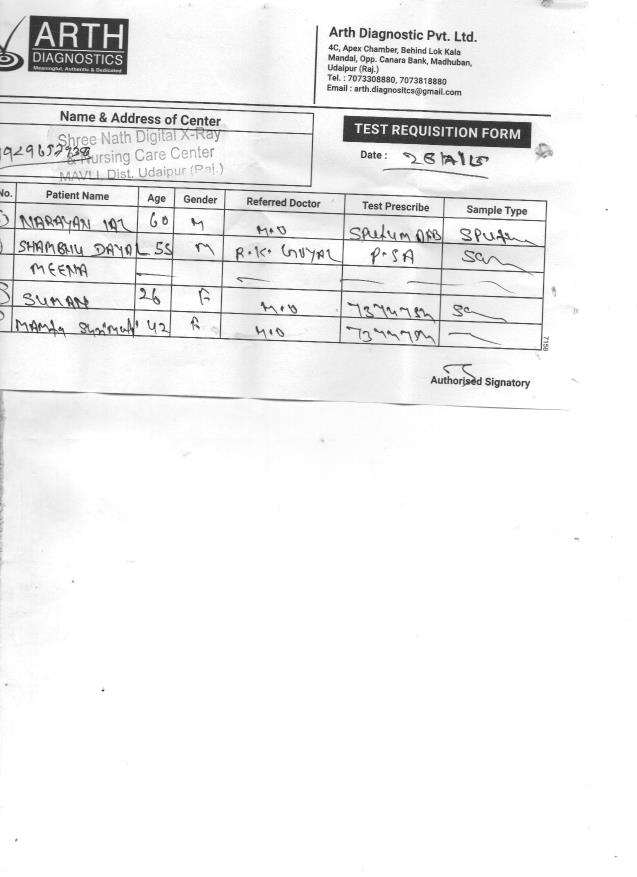 ARTH
DIAGNOSTICS
Meaningful, Authentic & Dedicated
Arth Diagnostic Pvt. Ltd.
4C, Apex Chamber, Behind Lok Kala
Mandal, Opp. Canara Bank, Madhuban,
Udaipur (Raj.)
Tel. : 7073308880, 7073818880
Email : arth.diagnositcs@gmail.com
Name & Address of Center
Shree Nath Digital X-Ray
& Nursing Care Center
MAVLI, Dist. Udaipur (Raj.)
TEST REQUISITION FORM
Date :
No. Patient Name Age Gender Referred Doctor Test Prescribe Sample Type
NARAYAN LAL 60 M M.O SPUTUM
SHAMBHU DAYAL 55 M R.K. GOYAL P.SA
MEENA
SUMAN 26 F M.O
MAMTA 42 F M.O
7158
Authorised Signatory